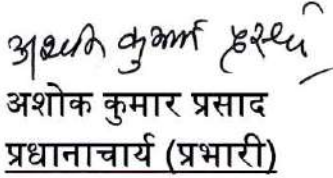 अशोक कुमार
अशोक कुमार प्रसाद
प्रधानाचार्य (प्रभारी)